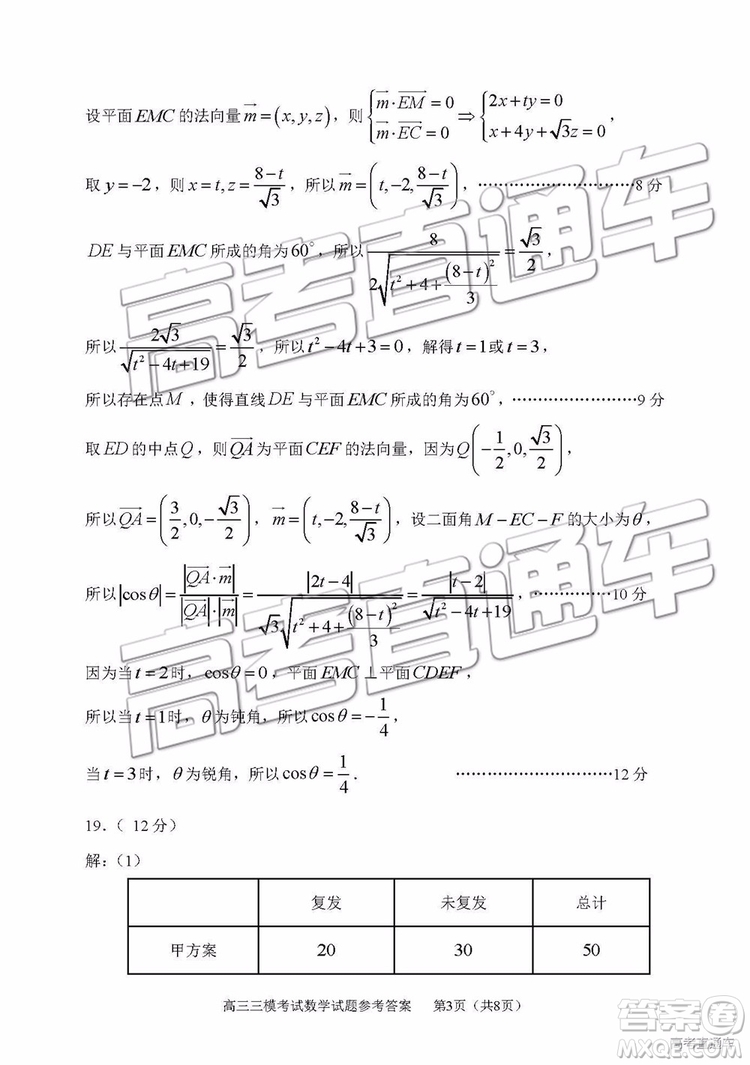 设平面EMC的法向量$\overrightarrow{m}=(x,y,z)$，则$\begin{cases}\overrightarrow{m}\cdot\overrightarrow{EM}=0\\\overrightarrow{m}\cdot\overrightarrow{EC}=0\end{cases}\Rightarrow\begin{cases}2x+ty=0\\x+4y+\sqrt{3}z=0\end{cases}$，
取$y=-2$，则$x=t,z=\frac{8-t}{\sqrt{3}}$，所以$\overrightarrow{m}=\left(t,-2,\frac{8-t}{\sqrt{3}}\right)$，…………………………8 分
DE与平面EMC所成的角为$60^\circ$，所以$\frac{8}{2\sqrt{t^2+4+\frac{(8-t)^2}{3}}}=\frac{\sqrt{3}}{2}$，
所以$\frac{2\sqrt{3}}{\sqrt{t^2-4t+19}}=\frac{\sqrt{3}}{2}$，所以$t^2-4t+3=0$，解得$t=1$或$t=3$，
所以存在点M，使得直线DE与平面EMC所成的角为$60^\circ$，…………………9 分
取ED的中点Q，则$\overrightarrow{QA}$为平面CEF的法向量，因为$Q\left(-\frac{1}{2},0,\frac{\sqrt{3}}{2}\right)$，
所以$\overrightarrow{QA}=\left(\frac{3}{2},0,-\frac{\sqrt{3}}{2}\right)$，$\overrightarrow{m}=\left(t,-2,\frac{8-t}{\sqrt{3}}\right)$，设二面角M-EC-F的大小为$\theta$，
所以$|\cos\theta|=\frac{|\overrightarrow{QA}\cdot\overrightarrow{m}|}{|\overrightarrow{QA}|\cdot|\overrightarrow{m}|}=\frac{|2t-4|}{\sqrt{3}\sqrt{t^2+4+\frac{(8-t)^2}{3}}}=\frac{|t-2|}{\sqrt{t^2-4t+19}}$，……………10 分
因为当$t=2$时，$\cos\theta=0$，平面EMC⊥平面CDEF，
所以当$t=1$时，$\theta$为钝角，所以$\cos\theta=-\frac{1}{4}$，
当$t=3$时，$\theta$为锐角，所以$\cos\theta=\frac{1}{4}$． …………………………12 分
19.（ 12分）
解：（1）
复发 未复发 总计
甲方案 20 30 50
高三三模考试数学试题参考答案 第3页（共8页）
高考直通车
高考直通车
答案圈
MXQE.COM
高考直通车